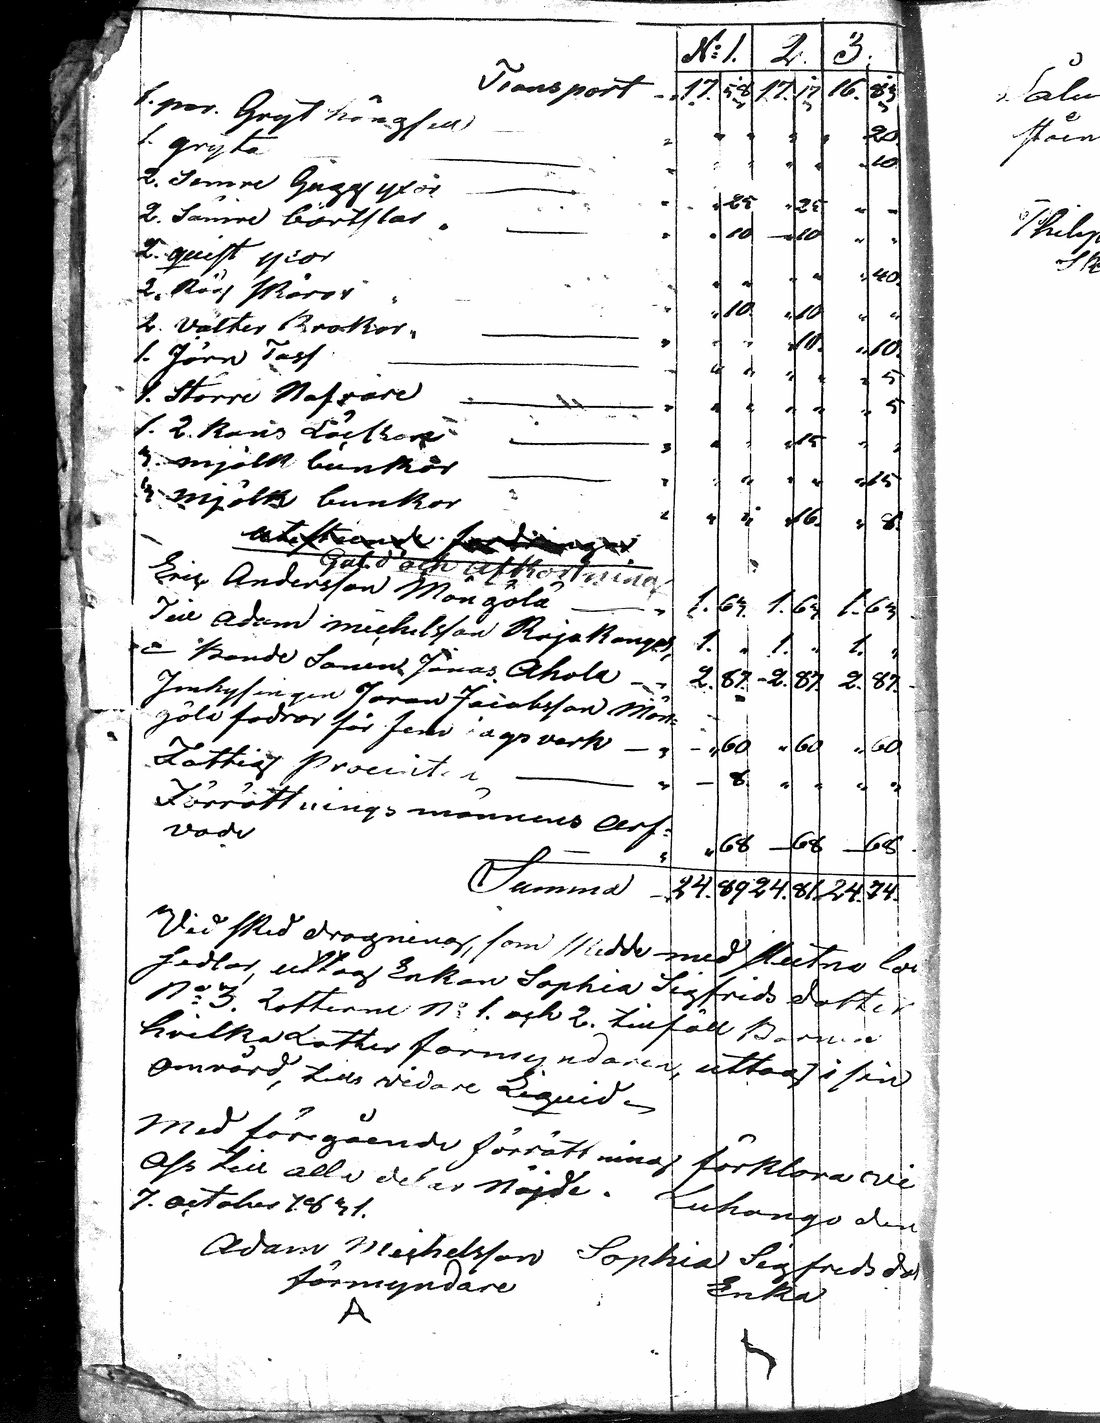 N:o 1. 2. 3.
Transport 17. 58 17. 17 16. 83
1. par. Gryt hängsell " " " " " 20
1. gryta " " " " " 10
2. Semre Gugg yxor " 25 " 25 " "
2. Sämre " 10 " 10 " "
2. quist yxor " " " " " 40
2. Råg skäror " 10 " 10 " "
2. Välter Krokor " " " 10 " 10
1. Jern Tass " " " " " 5
1. Större Nafvare " " " " " 5
1. 2. Kans " " " 15 " "
3. mjölk bunkor " " " " " 15
3. mjölk bunkor " " " 16 " 8
utestående fordringar
Gäld och afkortning
Eric Andersson Möngölä 1. 63 1. 63 1. 63
Till Adam Michelsson Rajakangas 1. " 1. " 1. "
Bonde Sonen Jonas Ahola 2. 87 2. 87 2. 87
Inhysingen Joran Jacobsson Mön-
gölä fodrar för fem dagsverk " 60 " 60 " 60
Fattig Procenten 8 " " " "
Förrättningsmännens arf-
vode " 68 68 68
Summa 24. 89 24. 81 24. 74
Vid sked dragning, som skedde med slutna
sedlar, uttog Enkan Sophia Sigfrids dotter
No 3. Lotterne No 1. och 2. tillföll Barnen
hvilka Lotter formyndaren, uttog i sin
omvård, tills vidare Liquid
Med föregående förrättning förklara vi
oss till alla delar nöjde. Luhango den
7. october 1831.
Adam Michelsson Sophia Sigfreds
förmyndare Enka
A